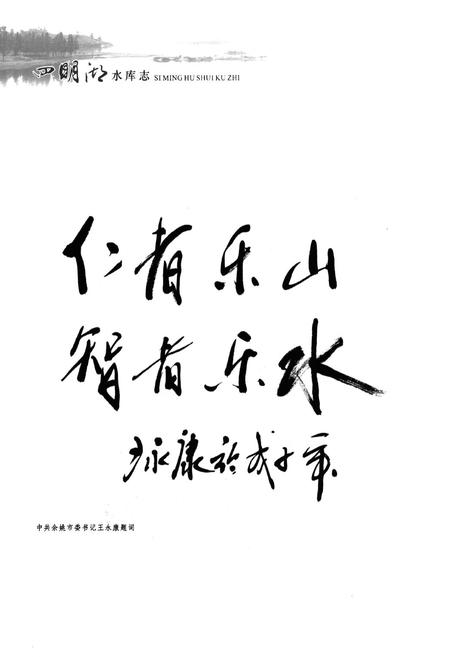 四明湖水库志 SI MING HU SHUI KU ZHI
仁者乐山
智者乐水
永康于戊子年
中共余姚市委书记王永康题词